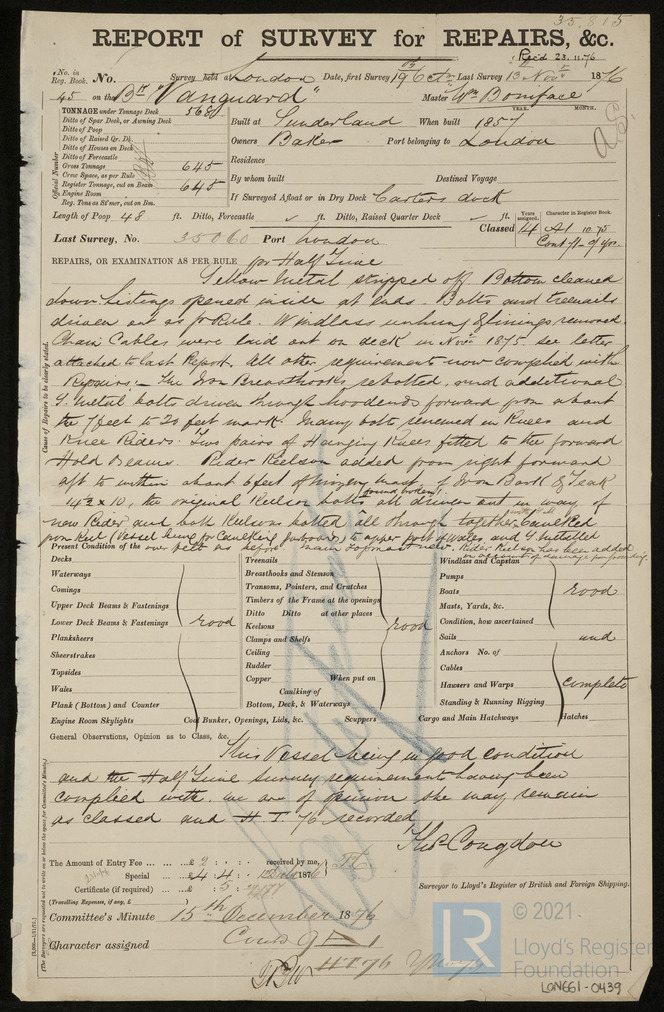 35,815
REPORT of SURVEY for REPAIRS, &c.
Rec'd 23.11.76
No. in Reg. Book. No. Survey held at London Date, first Survey 19th Oct. Last Survey 13 Novr 1876
45 on the Bk "Vanguard" Master Wm Boniface
TONNAGE under Tonnage Deck 568
Ditto of Spar Deck, or Awning Deck
Ditto of Poop
Ditto of Raised Qr. Dk.
Ditto of Houses on Deck
Ditto of Forecastle
Gross Tonnage 645
Crew Space, as per Rule
Register Tonnage, cut on Beam 645
Engine Room
Reg. Tons as St'mer, cut on Bm.
Official Number
YEAR. MONTH.
Built at Sunderland When built 1857
Owners Baker Port belonging to London
Residence
By whom built Destined Voyage
If Surveyed Afloat or in Dry Dock Carters dock
Length of Poop 48 ft. Ditto, Forecastle ft. Ditto, Raised Quarter Deck ft.
Years assigned. Character in Register Book.
Classed 14 A1 10.75
Cont 7 - 9 yrs.
Last Survey, No. 35060 Port London
REPAIRS, OR EXAMINATION AS PER RULE for Half Time
Yellow Metal stripped off Bottom cleaned
down. Listings opened inside at ends. Bolts and treenails
driven out as pr Rule. Windlass unhung & linings removed.
Chain Cables were laid out on deck in Novr 1875 see letter
attached to last Report. All other requirements now complied with
Repairs:- The Iron Breasthooks rebolted, and additional
Y. metal bolts driven through hoodends forward from about
the 7 feet to 20 feet mark. Many bolts renewed in Knees and
Knee Riders. Two pairs of Hanging Knees fitted to the forward
Hold Beams. Rider Keelson added from right forward
aft to within about 6 feet of mizen mast, of Iron Bark & Teak
14½ x 10, the original Keelson bolts all driven out in way of
new Rider and both Keelsons bolted all through together. Caulked
from Keel (Vessel hung for Caulking garboards) to upper part of Wales, and Y. Metalled
over felt as before. main topmast new. Rider Keelson has been added
Cause of Repairs to be clearly stated.
Present Condition of the
Decks
Waterways
Comings
Upper Deck Beams & Fastenings
Lower Deck Beams & Fastenings Good
Planksheers
Sheerstrakes
Topsides
Wales
Plank (Bottom) and Counter
Engine Room Skylights
Treenails
Breasthooks and Stemson
Transoms, Pointers, and Crutches
Timbers of the Frame at the openings
Ditto Ditto at other places
Keelsons Good
Clamps and Shelfs
Ceiling
Rudder
Copper When put on
Caulking of
Bottom, Deck, & Waterways
Coal Bunker, Openings, Lids, &c. Scuppers
Windlass and Capstan
Pumps
Boats Good
Masts, Yards, &c.
Condition, how ascertained
Sails and
Anchors No. of
Cables
Hawsers and Warps complete
Standing & Running Rigging
Cargo and Main Hatchways Hatches
General Observations, Opinion as to Class, &c.
This Vessel being in good condition
and the Half Time Survey requirements having been
complied with, we are of opinion she may remain
as classed and H.T. 76 recorded
Thos Congdon
Surveyor to Lloyd's Register of British and Foreign Shipping.
The Amount of Entry Fee £2 : : received by me,
Special £4 : 4 : 1876
Certificate (if required) £ : 5 :
(Travelling Expenses, if any, £ )
Committee's Minute 15th December 1876
Character assigned Contd 9 - 1
HT 76
(The Surveyors are requested not to write on or below the space for Committee's Minute.)
© 2021.
LR
Lloyd's Register Foundation
LON661-0439